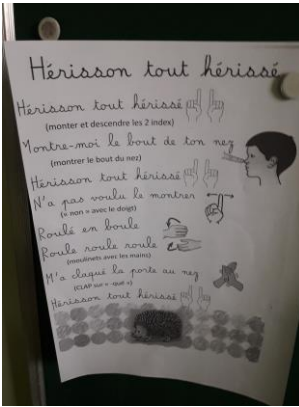 Hérisson tout hérissé
Hérisson tout hérissé
(monter et descendre les 2 index)
Montre-moi le bout de ton nez
(montrer le bout du nez)
Hérisson tout hérissé
N'a pas voulu le montrer
(« non » avec le doigt)
Roulé en boule
Roule roule roule
(moulinets avec les mains)
M'a claqué la porte au nez
(CLAP sur « -qué »)
Hérisson tout hérissé